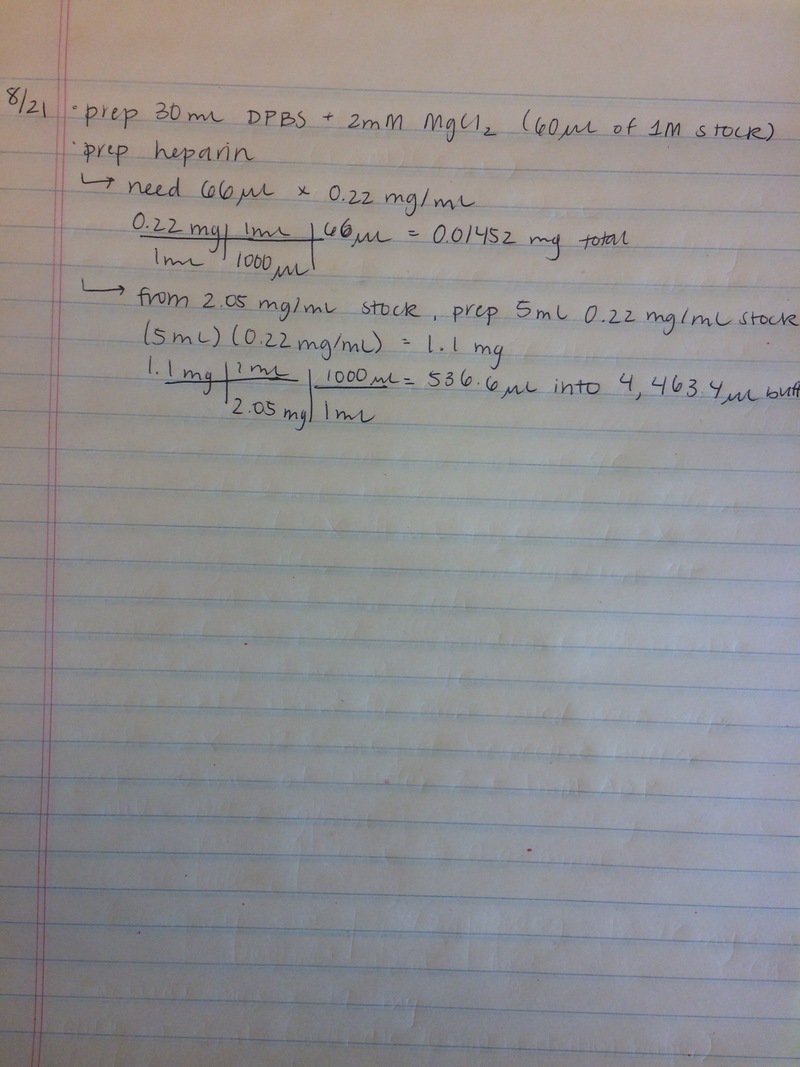 8/21 · prep 30mL DPBS + 2mM MgCl₂ (60μL of 1M stock)
· prep heparin
↳ need 66μL x 0.22 mg/mL
0.22 mg | 1mL | 66μL = 0.01452 mg total
1mL | 1000μL |
↳ from 2.05 mg/mL stock, prep 5mL 0.22 mg/mL stock
(5mL)(0.22 mg/mL) = 1.1 mg
1.1 mg | 1mL | 1000μL = 536.6μL into 4,463.4μL buff
| 2.05 mg | 1mL